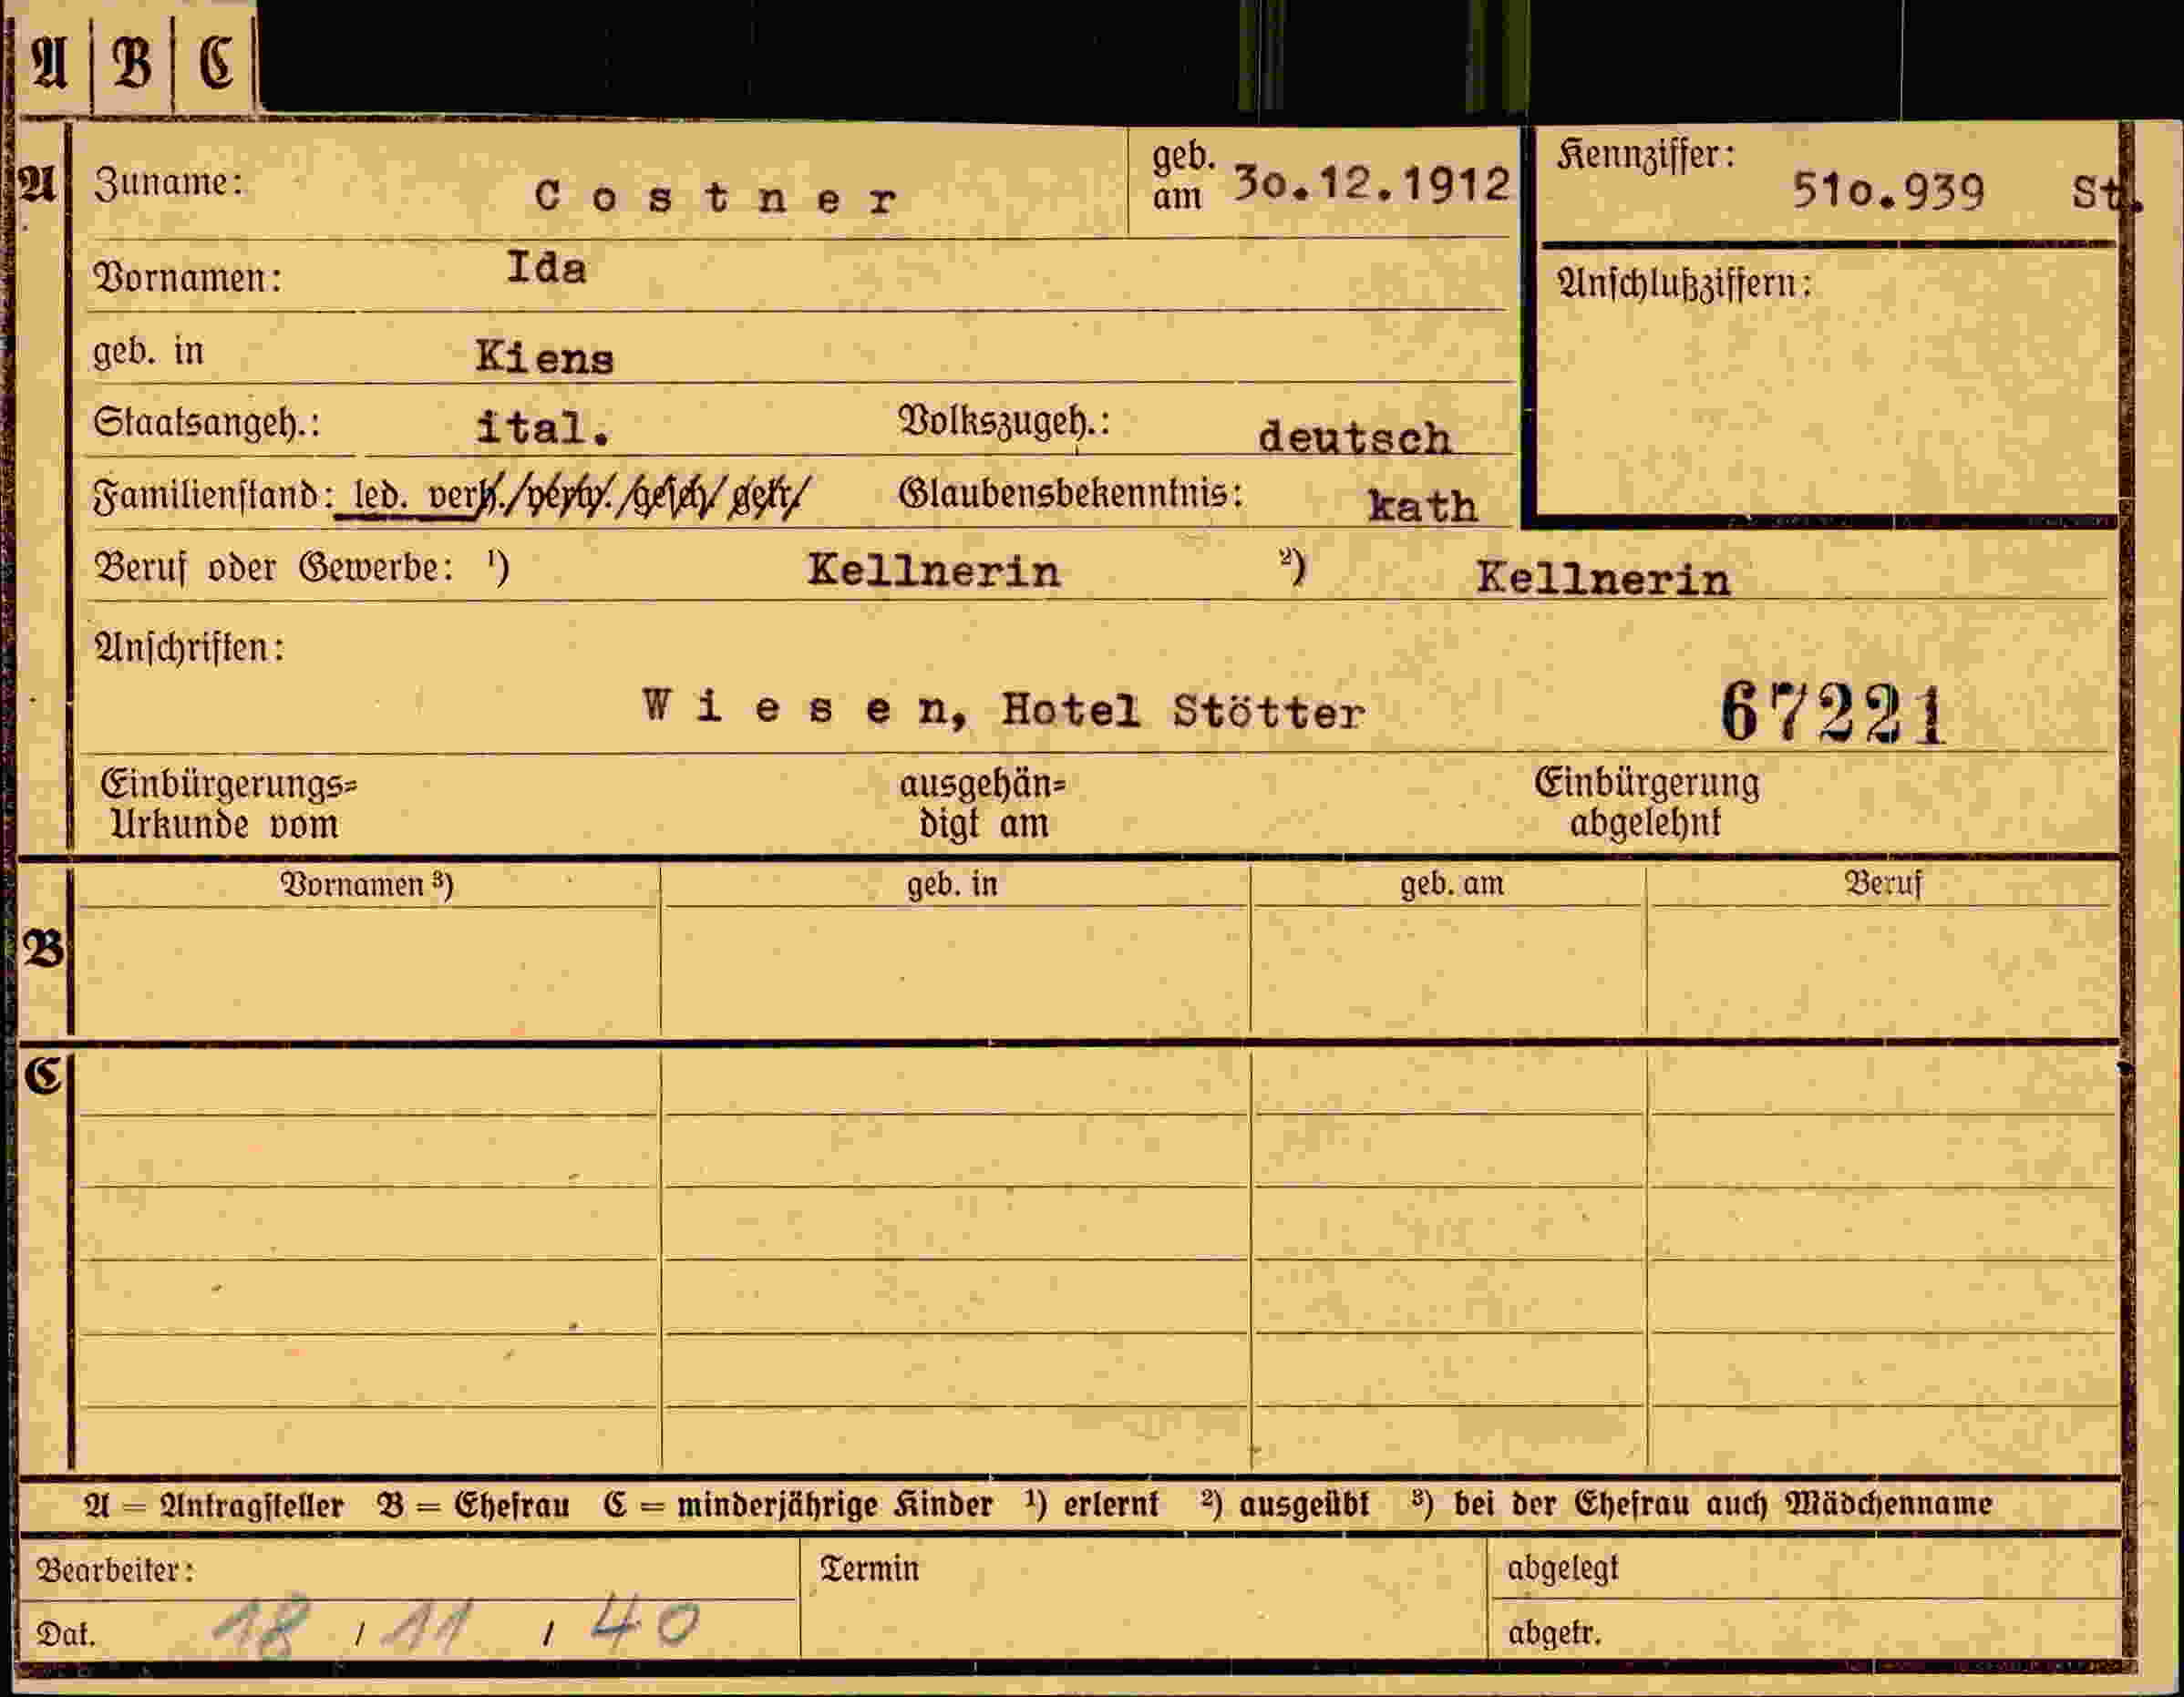 A B C
A Zuname: Costner geb. am 30.12.1912 Kennziffer: 510.939 St.
Vornamen: Ida Anschlußziffern:
geb. in Kiens
Staatsangeh.: ital. Volkszugeh.: deutsch
Familienstand: led. verh./verw./gesch/ getr/ Glaubensbekenntnis: kath
Beruf oder Gewerbe: ¹) Kellnerin ²) Kellnerin
Anschriften:
Wiesen, Hotel Stötter 67221
Einbürgerungs= ausgehän= Einbürgerung
Urkunde vom digt am abgelehnt
Vornamen ³) geb. in geb. am Beruf
B
C
A = Antragsteller B = Ehefrau C = minderjährige Kinder ¹) erlernt ²) ausgeübt ³) bei der Ehefrau auch Mädchenname
Bearbeiter: Termin abgelegt
Dat. 18 / 11 / 40 abgetr.